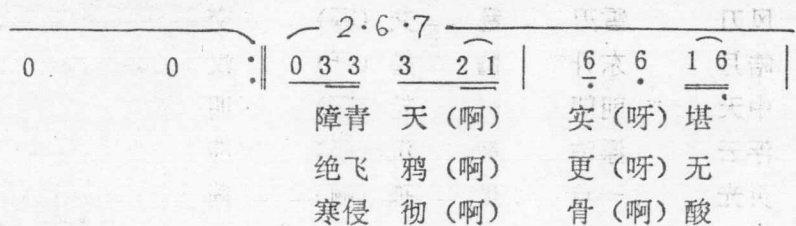 2·6·7
0 0 :‖ 0 3 3 3 2 1 | 6 6 1 6 |
障青 天（啊） 实（呀）堪
绝飞 鸦（啊） 更（呀）无
寒侵 彻（啊） 骨（啊）酸